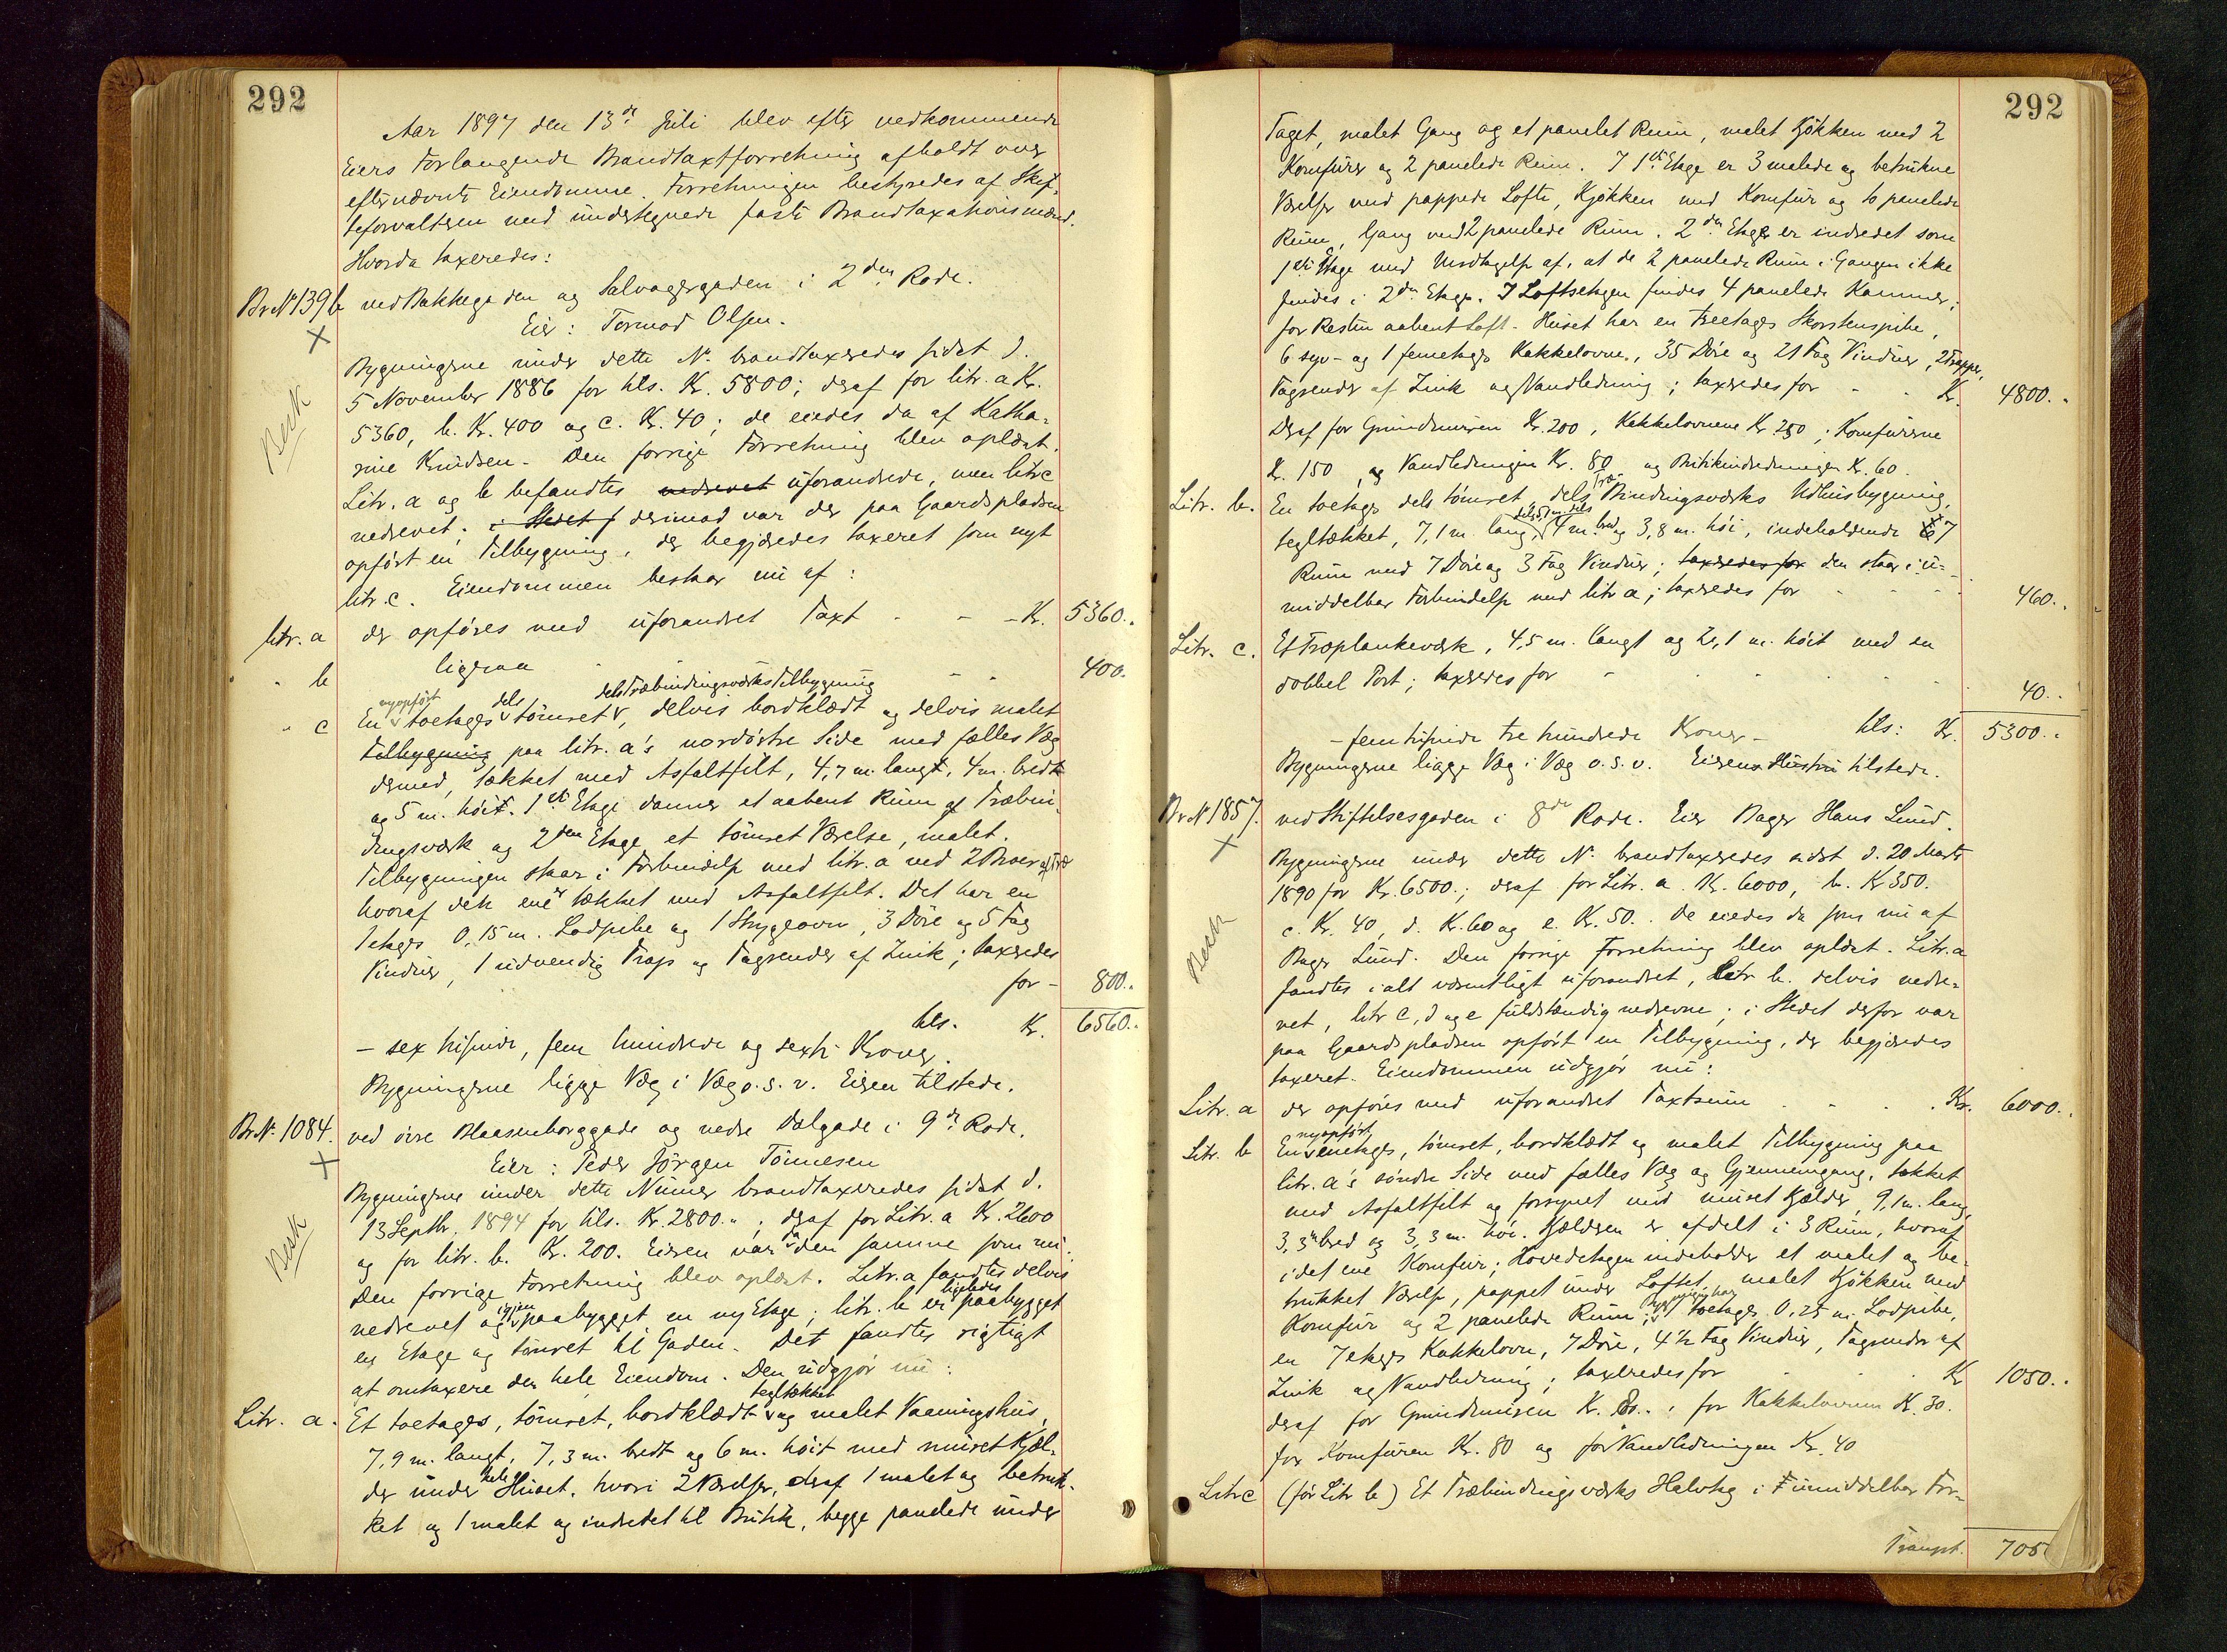 292
Aar 1897 den 13de Juli blev efter vedkommende
Eiers Forlangende Brandtaxtforretning afholdt over
efternævnte Eiendomme. Forretningen bestyredes af Skif-
teforvalteren med undertegnede faste Brandtaxationsmænd.
Hvorda taxeredes:
Br No 139b ved Bakkegaden og Salvagergaden i 2den Rode.
Eier: Tormod Olsen.
Besk
Bygningerne under dette No. brandtaxeredes sidst d.
5 November 1886 for tils. Kr. 5800; deraf for litr. a Kr.
5360, b. Kr. 400 og c. Kr. 40; de eiedes da af Katha-
rine Knudsen. Den forrige Forretning blev oplæst.
Litr. a og b befandtes nedrevet uforandrede, men litr c
nedrevet; i Stedet f derimod var der paa Gaardspladsen
opført en Tilbygning, der begjæredes taxeret som nyt
litr. c. Eiendommen bestaar nu af:
litr. a der opføres med uforandret Taxt - - - Kr. 5360.
" b ligesaa - - 400.
nyopført dels dels Træbindingsværks Tilbygning
" c En toetages tømret, delvis bordklædt og delvis malet
Tilbygning paa litr. a's nordøstre Side med fælles Væg
dermed, tækket med Asfaltfilt, 4,7 m. langt, 4 m. bredt
og 5 m. høit. 1ste Etage danner et aabent Rum af Træbin-
dingsværk og 2den Etage et tømret Værelse, malet.
Tilbygningen staar i Forbindelse med litr. a ved 2 Broer af Træ
hvoraf den ene er tækket med Asfaltfilt. Det har en
1etages 0,15 m. Lodpibe og 1 Strygeovn, 3 Døre og 5 Fag
Vinduer, 1 udvendig Trap og Tagrender af Zink; taxeredes
for - 800.
tils. Kr. 6560.
- sex tusinde, fem hundrede og sexti Kroner.
Bygningerne ligge Væg i Væg o. s. v. Eieren tilstede.
Br No. 1084. ved øvre Blaasenborggade og nedre Dalgade i 9de Rode.
Eier: Peder Jørgen Tønnesen
Besk
Bygningerne under dette Numer brandtaxeredes sidst d.
13 Septbr. 1894 for tils. Kr. 2800.; deraf for Litr. a Kr. 2600
og for litr. b. Kr. 200. Eieren var da den samme som nu.
Den forrige Forretning blev oplæst. Litr. a fandtes delvis
igjen ligeledes
nedrevet og paabygget en ny Etage; litr. b er paabygget
en Etage og tømret til Gaden. Det fandtes rigtigt
at omtaxere den hele Eiendom. Den udgjør nu:
tegltækket
Litr. a. Et toetages, tømret, bordklædt og malet Vaaningshus,
7,9 m. langt, 7,3 m. bredt og 6 m. høit med muret Kjæl-
der under hele Huset, hvori 2 Værelser, deraf 1 malet og betruk-
ket og 1 malet og indredet til Butik, begge panelede under
292
Taget, malet Gang og et panelet Rum, malet Kjøkken med 2
Komfurer og 2 panelede Rum. I 1ste Etage er 3 malede og betrukne
Værelser med pappede Lofte, Kjøkken med Komfur og to panelede
Rum, Gang med 2 panelede Rum. 2den Etage er indredet som
1ste Etage med Undtagelse af, at de 2 panelede Rum i Gangen ikke
findes i 2den Etage. I Loftsetagen findes 4 panelede Kammer;
for Resten aabent Loft. Huset har en treetages Skorstenspibe,
6 syv- og 1 femetages Kakkelovne, 35 Døre og 21 Fag Vinduer, 2 Trapper,
Tagrender af Zink og Vandledning; taxeredes for - - Kr. 4800.
Deraf for Grundmuren Kr. 200, Kakkelovnene Kr. 250, Komfurerne
Kr. 150, og Vandledningen Kr. 80 og Butikindredningen Kr. 60.
Litr. b. En toetages dels tømret, dels Træ Bindingsværks Udhusbygning,
tegltækket, 7,1 m. lang, 4 m. bred og 3,8 m. høi, indeholdende 7
Rum med 7 Døre og 3 Fag Vinduer; taxeredes for den staar i u-
middelbar Forbindelse med litr a; taxeredes for - - - 460.
Litr. c. Et Træplankeværk, 4,5 m. langt og 2,1 m. høit med en
dobbel Port; taxeredes for - - - - 40.
- fem tusinde tre hundrede Kroner - tils: Kr. 5300.
Bygningerne ligge Væg i Væg o. s. v. Eierens Hustru tilstede.
Br No 1857. ved Stiftelsesgaden i 8de Rode. Eier Bager Hans Lund.
Besk
Bygningerne under dette No. brandtaxeredes sidst d. 20 Marts
1890 for Kr. 6500.; deraf for Litr. a. Kr. 6000, b. Kr 350.
c. Kr. 40, d. Kr. 60 og e. Kr. 50. De eiedes da som nu af
Bager Lund. Den forrige Forretning blev oplæst. Litr. a
fandtes i alt væsentligt uforandret, Litr b. delvis nedre-
vet, litr c, d og e fuldstændig nedrevne; i Stedet derfor var
paa Gaardspladsen opført en Tilbygning, der begjæredes
taxeret. Eiendommen udgjør nu:
Litr. a der opføres med uforandret Taxtsum - - - Kr. 6000.
nyopført
Litr. b En enetages, tømret, bordklædt og malet Tilbygning paa
litr. a's søndre Side med fælles Væg og Gjennemgang, tækket
med Asfaltfilt og forsynet med muret Kjælder, 9,1 m. lang,
3,3 m bred og 3,3 m. høi. Kjælderen er afdelt i 3 Rum, hvoraf
i det ene Komfur; Hovedetagen indeholder et malet og be-
trukket Værelse, pappet under Loftet, malet Kjøkken med
Komfur og 2 panelede Rum; toetages 0,25 m. Lodpibe,
en 7etages Kakkelovn, 7 Døre, 4 1/2 Fag Vinduer, Tagrender af
Zink og Vandledning; taxeredes for - - Kr 1050.
deraf for Grundmuren Kr. for Kakkelovnen Kr. 30.
for Komfuren Kr. 80 og for Vandledningen Kr. 40
Litr c (før Litr b) Et Træbindingsværks Halvtag i umiddelbar For-
Transpt. 705